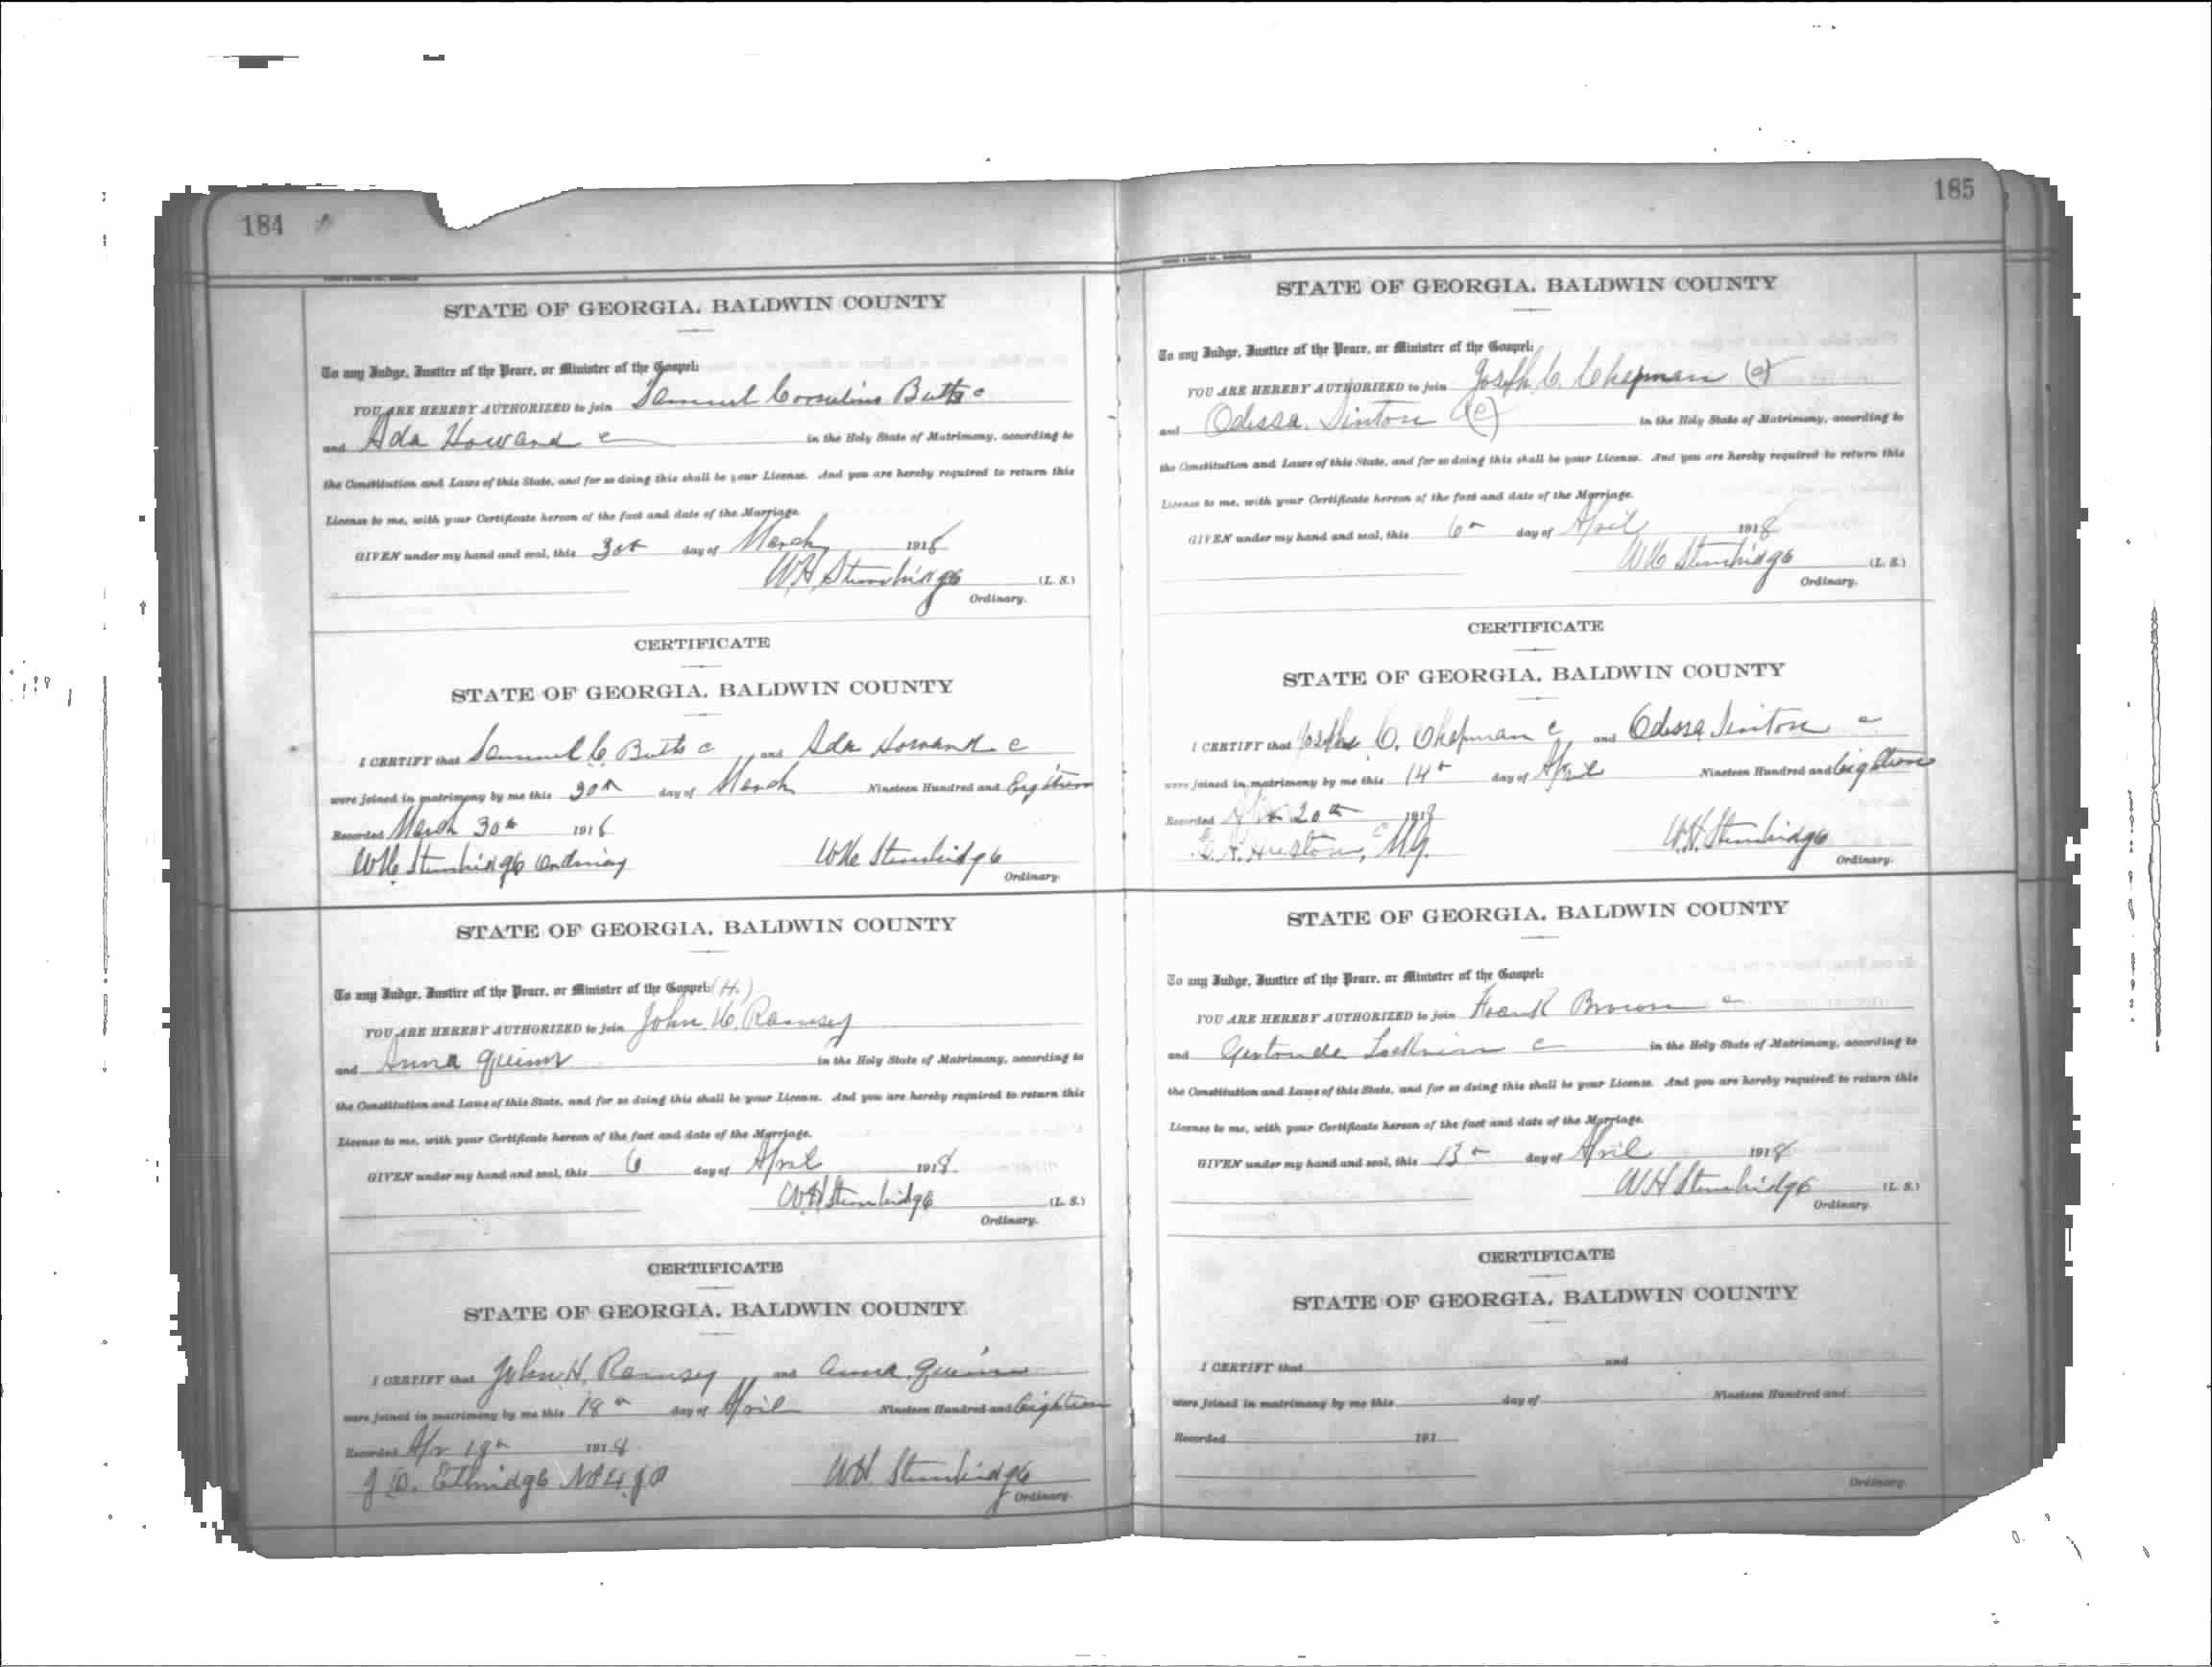 184
STATE OF GEORGIA, BALDWIN COUNTY
To any Judge, Justice of the Peace, or Minister of the Gospel:
YOU ARE HEREBY AUTHORIZED to join Samuel Cornelius Butts c
and Ada Howard c in the Holy State of Matrimony, according to
the Constitution and Laws of this State, and for so doing this shall be your License. And you are hereby required to return this
License to me, with your Certificate hereon of the fact and date of the Marriage.
GIVEN under my hand and seal, this 30th day of March 1918
W.H. Stembridge (L. S.)
Ordinary.
CERTIFICATE
STATE OF GEORGIA, BALDWIN COUNTY
I CERTIFY that Samuel C. Butts c and Ada Howard c
were joined in matrimony by me this 30th day of March Nineteen Hundred and Eighteen
Recorded March 30th 1918
WH Stembridge Ordinary WH Stembridge
Ordinary.
STATE OF GEORGIA, BALDWIN COUNTY
To any Judge, Justice of the Peace, or Minister of the Gospel: (H.)
YOU ARE HEREBY AUTHORIZED to join John H. Ramsey
and Anna Quinn in the Holy State of Matrimony, according to
the Constitution and Laws of this State, and for so doing this shall be your License. And you are hereby required to return this
License to me, with your Certificate hereon of the fact and date of the Marriage.
GIVEN under my hand and seal, this 6 day of April 1918
WH Stembridge (L. S.)
Ordinary.
CERTIFICATE
STATE OF GEORGIA, BALDWIN COUNTY
I CERTIFY that John H. Ramsey and Anna Quinn
were joined in matrimony by me this 18th day of April Nineteen Hundred and Eighteen
Recorded Apr 19th 1918
Ethridge W.H. Stembridge
Ordinary.
185
STATE OF GEORGIA, BALDWIN COUNTY
To any Judge, Justice of the Peace, or Minister of the Gospel:
YOU ARE HEREBY AUTHORIZED to join Joseph C. Chapman (c)
and Odessa Sinton (c) in the Holy State of Matrimony, according to
the Constitution and Laws of this State, and for so doing this shall be your License. And you are hereby required to return this
License to me, with your Certificate hereon of the fact and date of the Marriage.
GIVEN under my hand and seal, this 6th day of April 1918
WH Stembridge (L. S.)
Ordinary.
CERTIFICATE
STATE OF GEORGIA, BALDWIN COUNTY
I CERTIFY that C. Chapman c and Odessa Sinton c
were joined in matrimony by me this 14th day of April Nineteen Hundred and Eighteen
Recorded 20th 1918
Huston, M.G. W.H. Stembridge
Ordinary.
STATE OF GEORGIA, BALDWIN COUNTY
To any Judge, Justice of the Peace, or Minister of the Gospel:
YOU ARE HEREBY AUTHORIZED to join Frank Brown c
and Gertrude c in the Holy State of Matrimony, according to
the Constitution and Laws of this State, and for so doing this shall be your License. And you are hereby required to return this
License to me, with your Certificate hereon of the fact and date of the Marriage.
GIVEN under my hand and seal, this 13th day of April 1918
WH Stembridge (L. S.)
Ordinary.
CERTIFICATE
STATE OF GEORGIA, BALDWIN COUNTY
I CERTIFY that and
were joined in matrimony by me this day of Nineteen Hundred and
Recorded 191
Ordinary.